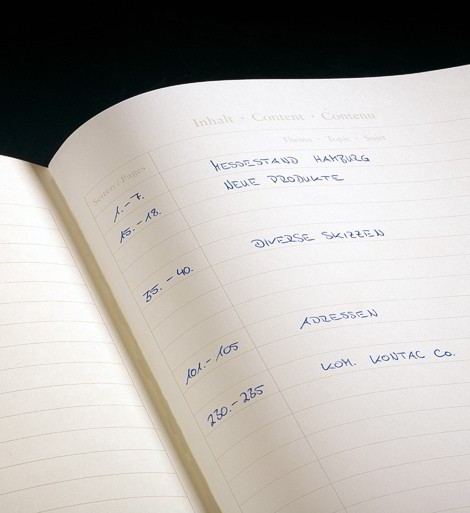 Inhalt · Content · Contenu
Seiten / Pages
Thema · Topic · Sujet
1.-7. MESSESTAND HAMBURG
15.-18. NEUE PRODUKTE
35.-40. DIVERSE SKIZZEN
101.-105 ADRESSEN
230.-235 KOM. KONTAC CO.